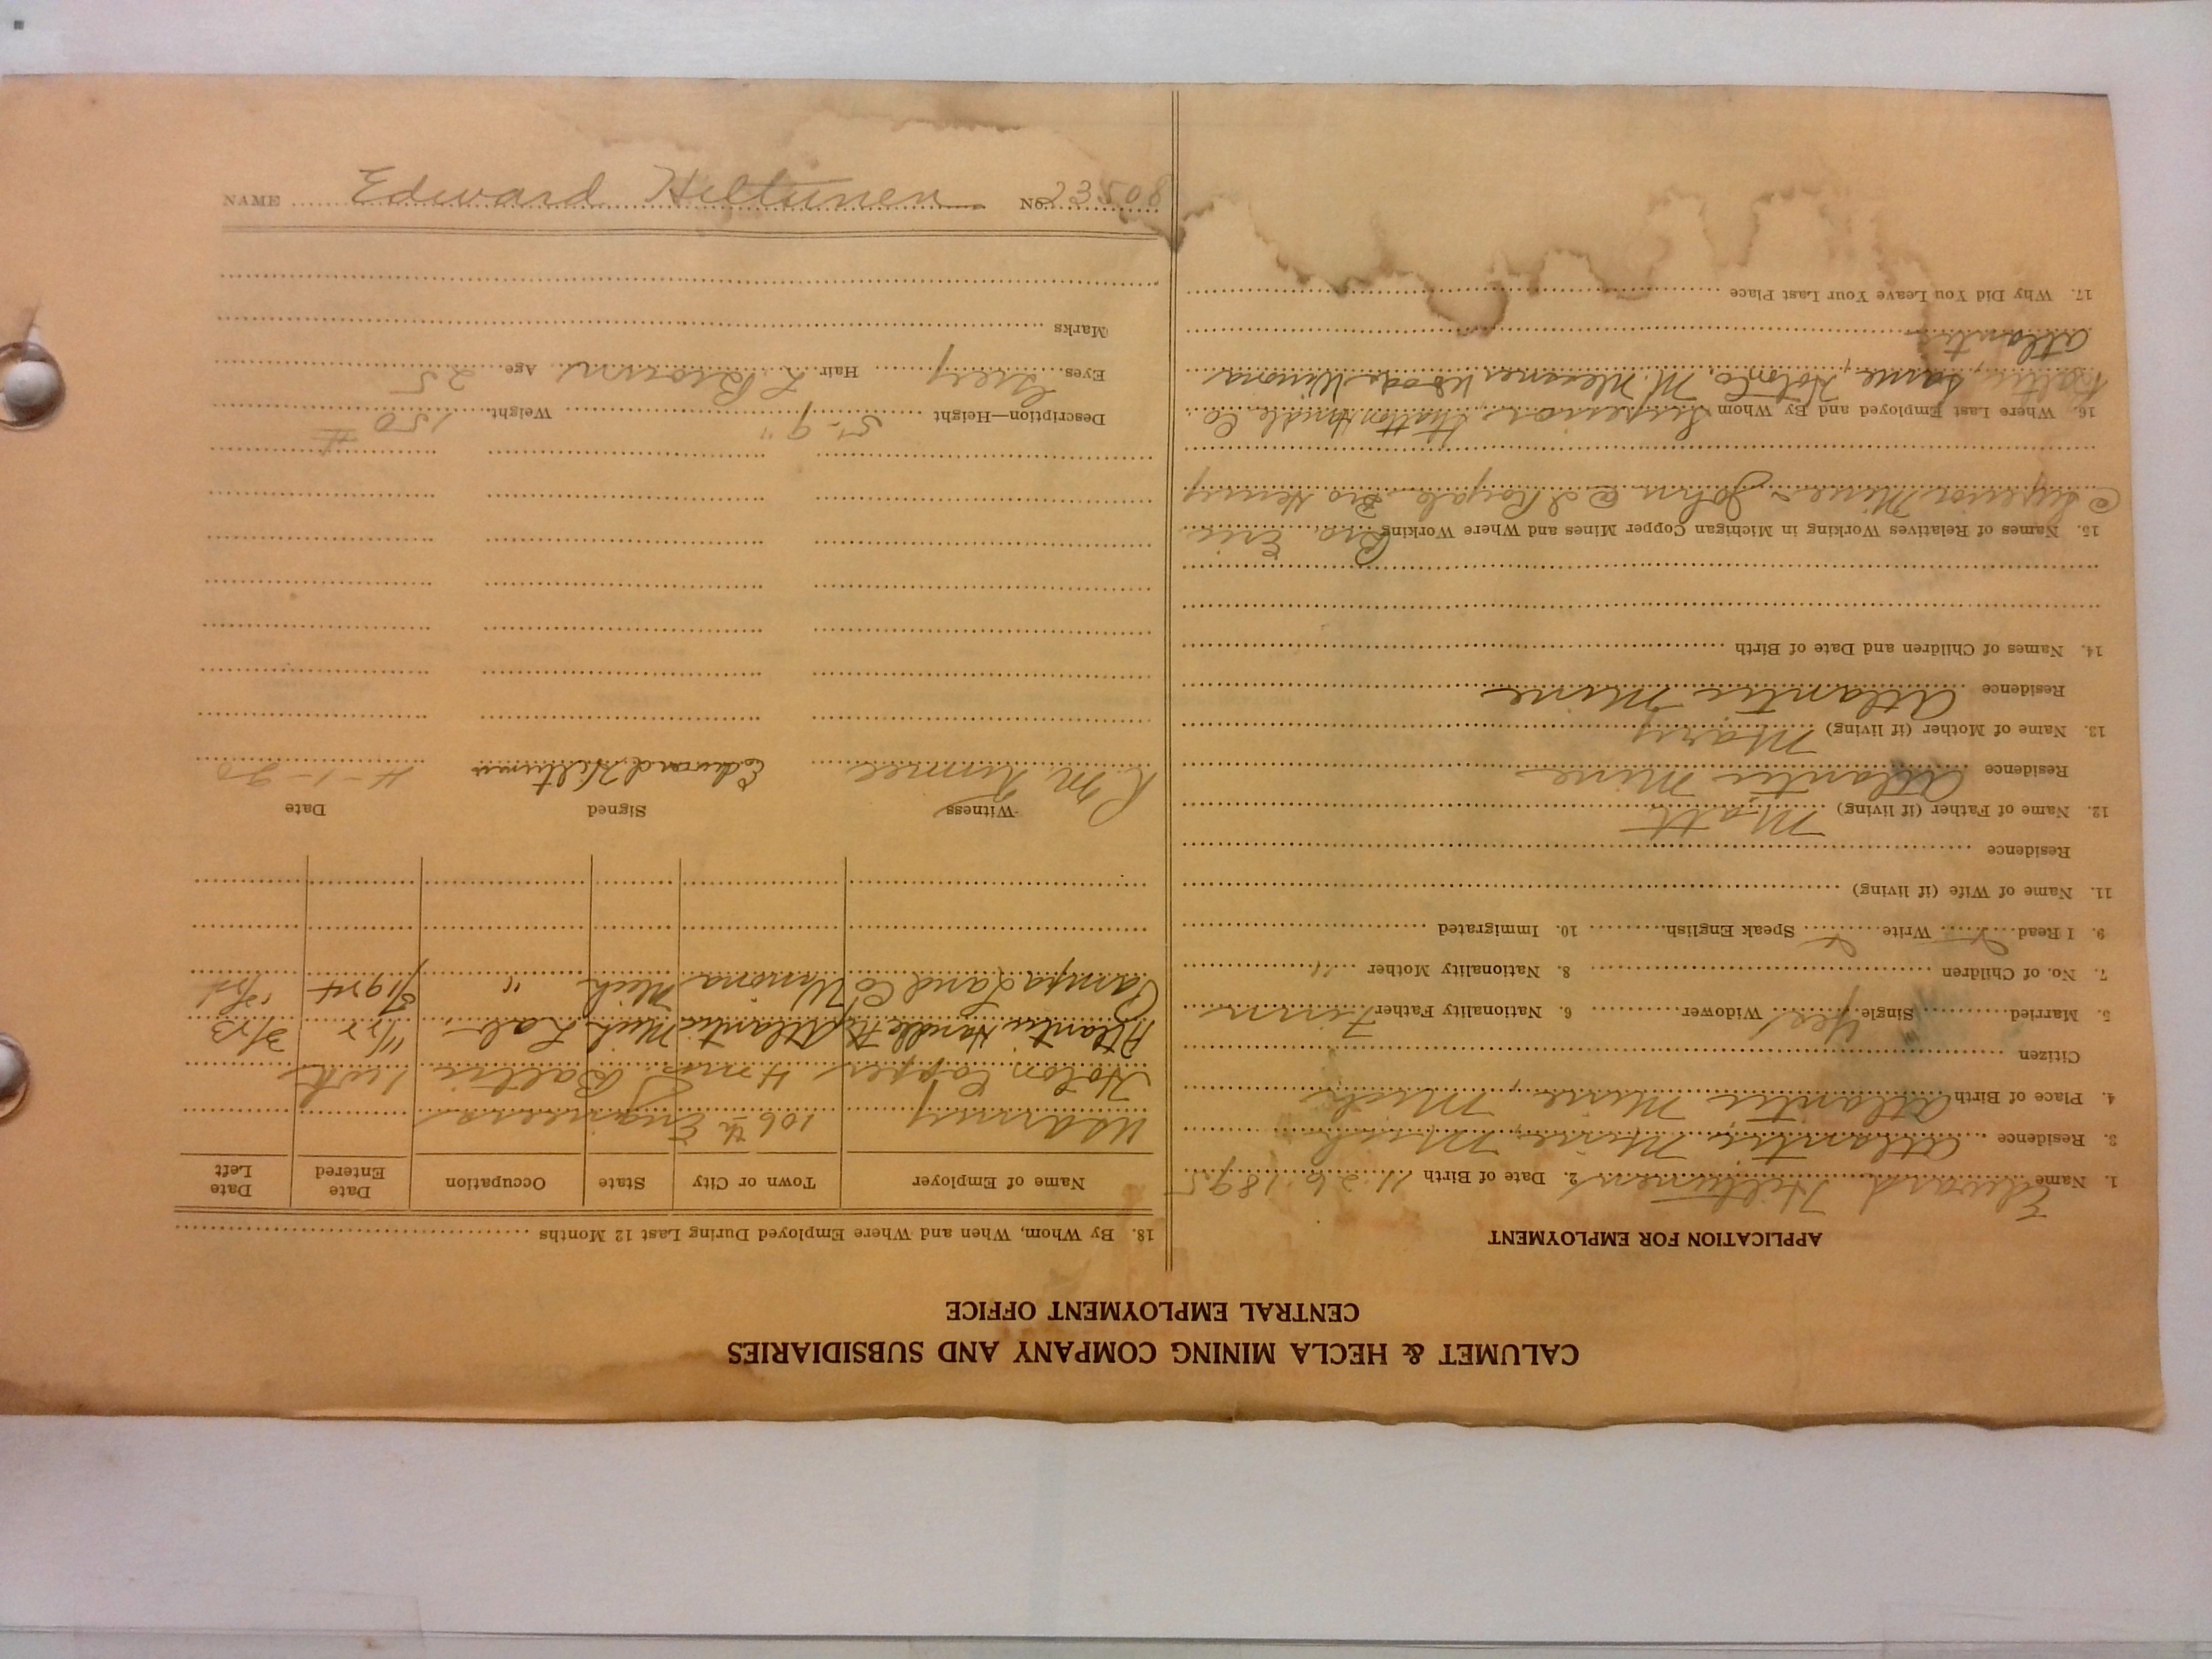 CALUMET & HECLA MINING COMPANY AND SUBSIDIARIES
CENTRAL EMPLOYMENT OFFICE
APPLICATION FOR EMPLOYMENT
1. Name Edward Hiltunen 2. Date of Birth 11-26-1895
3. Residence Atlantic Mine, Mich
4. Place of Birth Atlantic Mine, Mich
Citizen
5. Married Single Yes Widower 6. Nationality Father Finn
7. No. of Children 8. Nationality Mother "
9. I Read Write Speak English 10. Immigrated
11. Name of Wife (if living)
Residence
12. Name of Father (if living) Matt
Residence Atlantic Mine
13. Name of Mother (if living) Mary
Residence Atlantic Mine
14. Names of Children and Date of Birth
15. Names of Relatives Working in Michigan Copper Mines and Where Working Bro. Eric
@ Superior Mine - John @ I Royale Bro Henry
16. Where Last Employed and By Whom Superior Handle Co
Baltic, same, Hoton Co. M. Messner Woods Winona
Atlantic
17. Why Did You Leave Your Last Place
18. By Whom, When and Where Employed During Last 12 Months
Name of Employer Town or City State Occupation Date Entered Date Left
US army 106th Engineers
Hoton Copper 4 mos. Baltic 1 wk
Atlantic Handle Atlantic Mich Lab 11/22 3/23
Land Co Winona Mich "
Witness Signed Date
R M Edward Hiltunen 4-1-20
Description—Height 5'-9" Weight 150 #
Eyes Grey Hair L Brown Age 25
Marks
NAME Edward Hiltunen NO. 23508